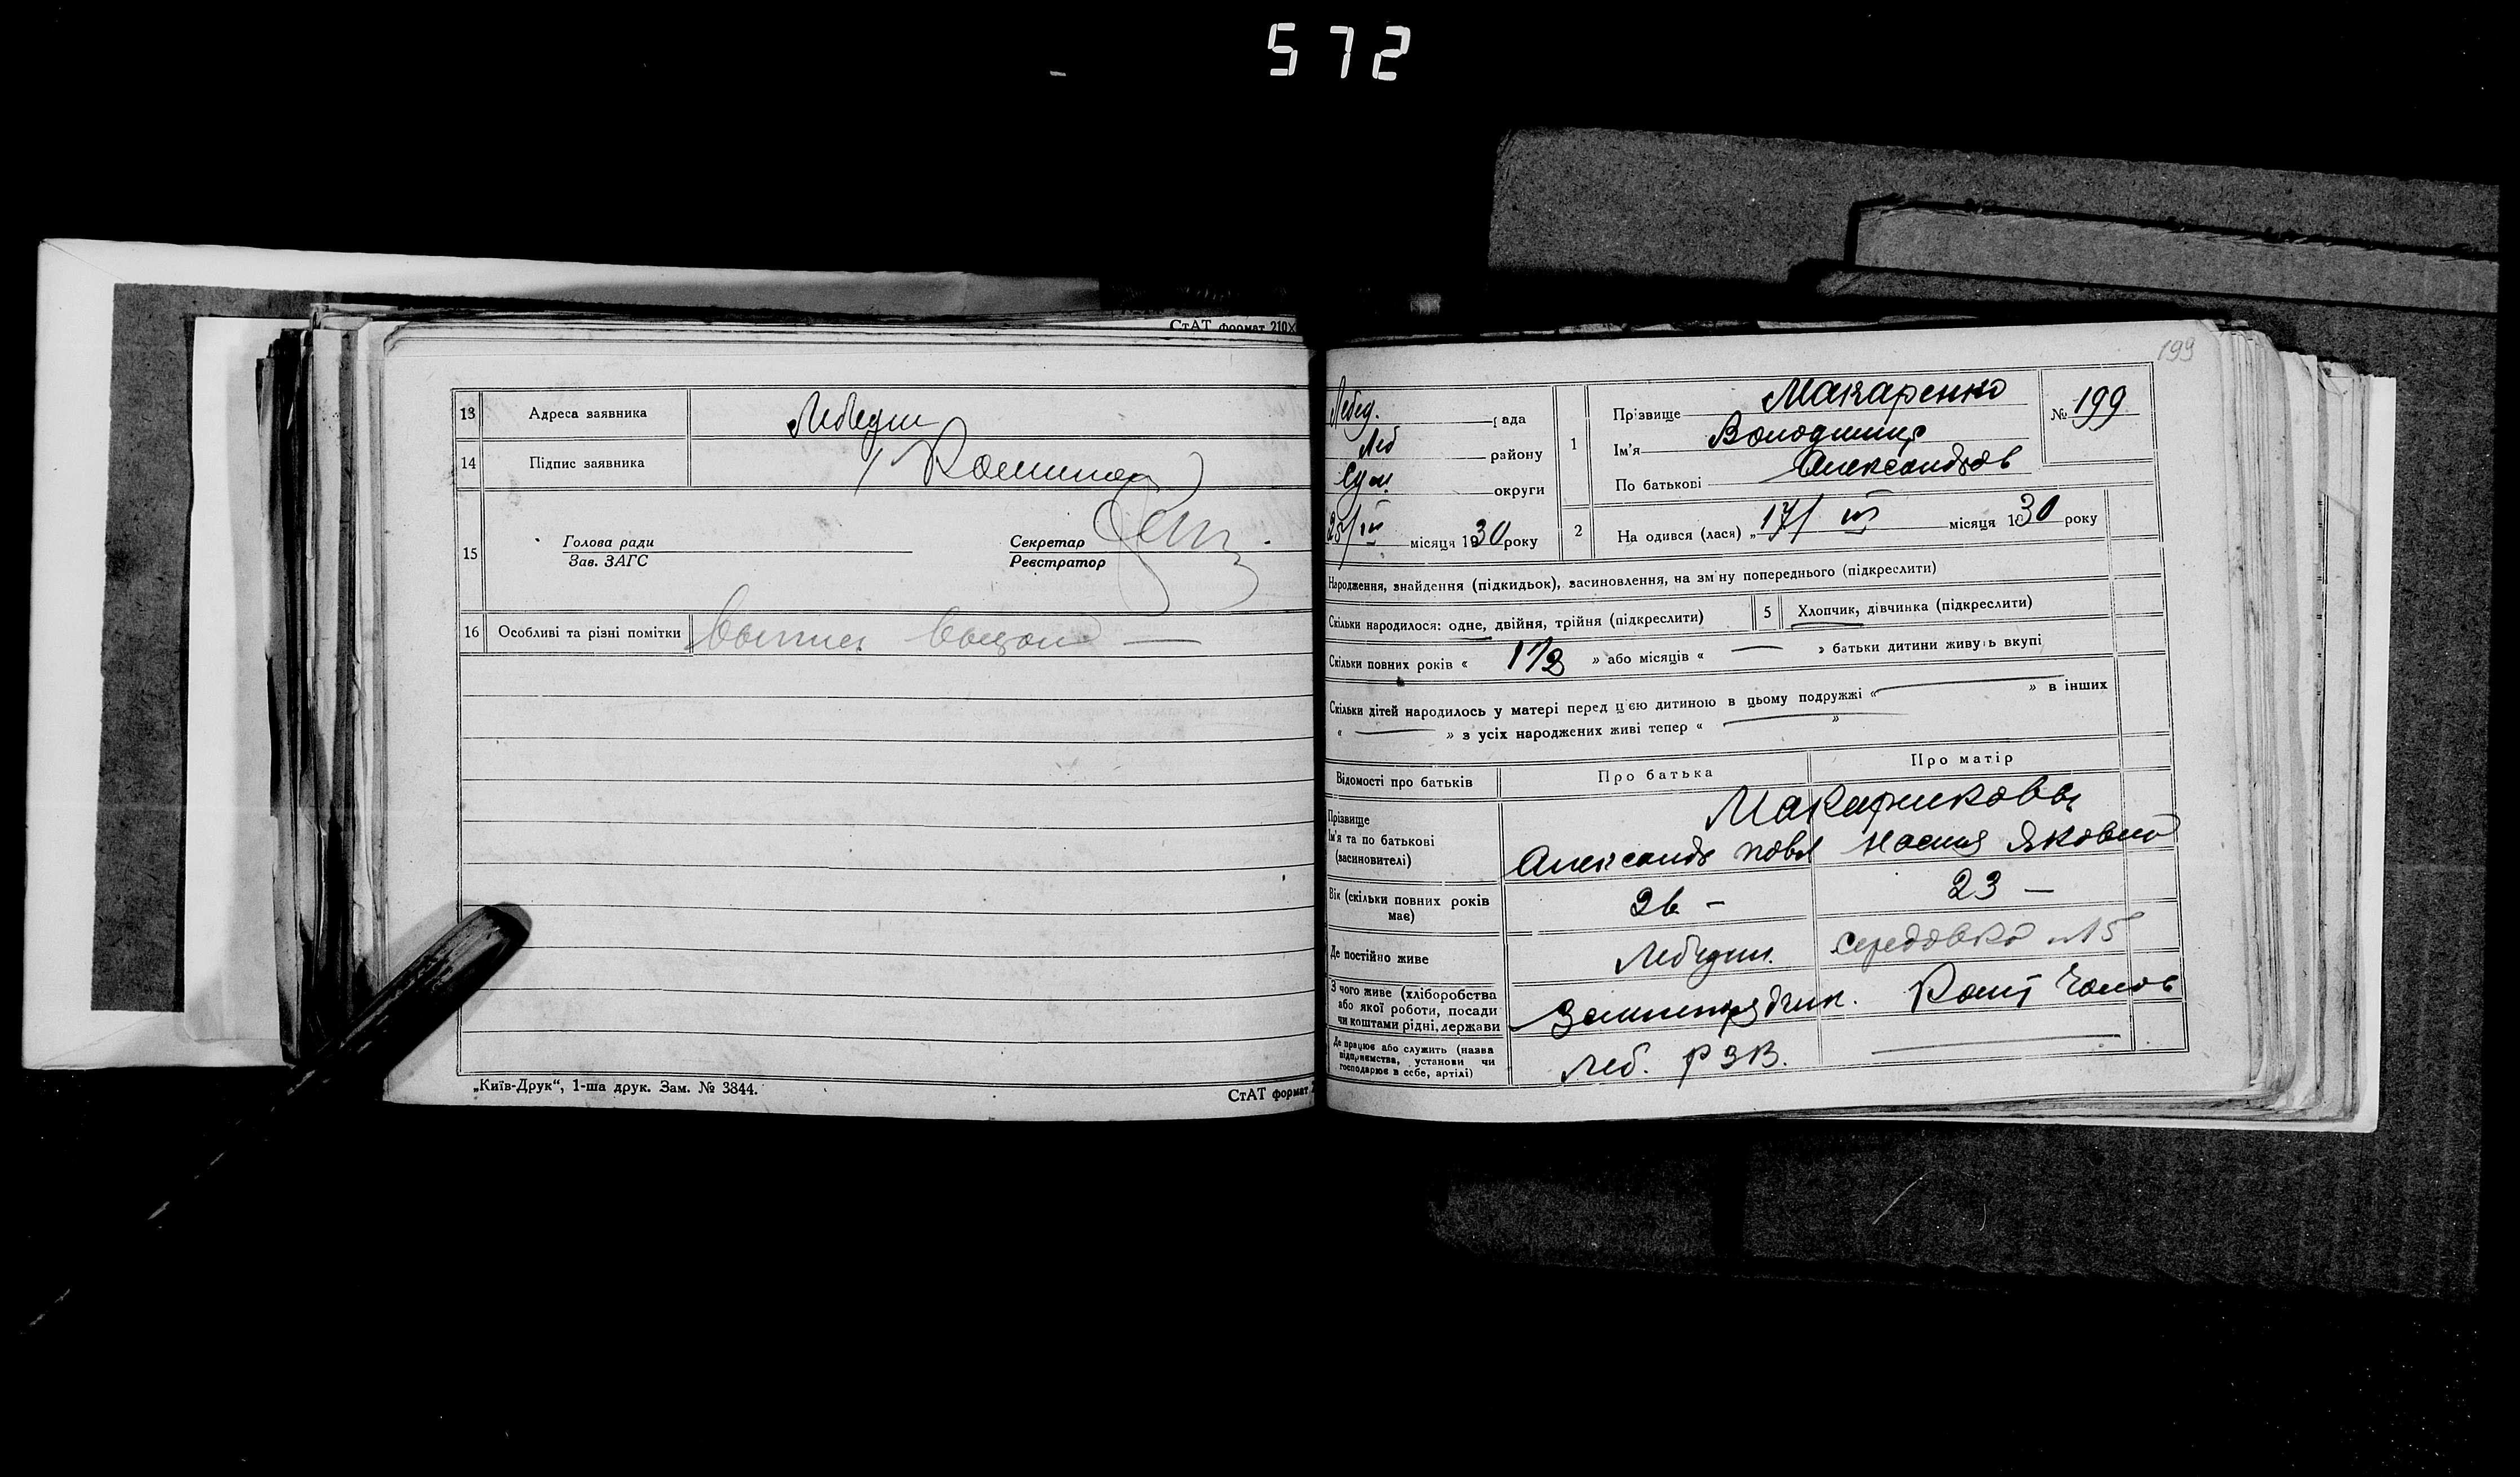 572
СтАТ формат 210×
13 Адреса заявника Лебедин
14 Підпис заявника
15 Голова ради Секретар
Зав. ЗАГС Реєстратор
16 Особливі та різні помітки
„Київ-Друк“, 1-ша друк. Зам. № 3844.
СтАТ формат
199
Лебед. рада
Леб району
Сум. округи
25/III місяця 1930 року
1 Прізвище Макаренко
Ім'я Володимир
По батькові Александров
№ 199
2 На одився (лася) „17/ III місяця 1930 року
Народження, знайдення (підкидьок), засиновлення, на зміну попереднього (підкреслити)
Скільки народилося: одне, двійня, трійня (підкреслити) 5 Хлопчик, дівчинка (підкреслити)
Скільки повних років « 1 1/2 » або місяців « — » батьки дитини живуть вкупі
Скільки дітей народилось у матері перед цією дитиною в цьому подружжі « — » в інших
« — » з усіх народжених живі тепер « — »
Відомості про батьків Про батька Про матір
Прізвище
Ім'я та по батькові
(засиновителі) Александр Павл Настя Яковна
Вік (скільки повних років має) 26 – 23 —
Де постійно живе Лебедин. Середовка №15
З чого живе (хліборобства
або якої роботи, посади
чи коштами рідні, держави
Де працює або служить (назва
підприємства, установи чи
господарює в себе, артілі) Леб. РЗВ. —